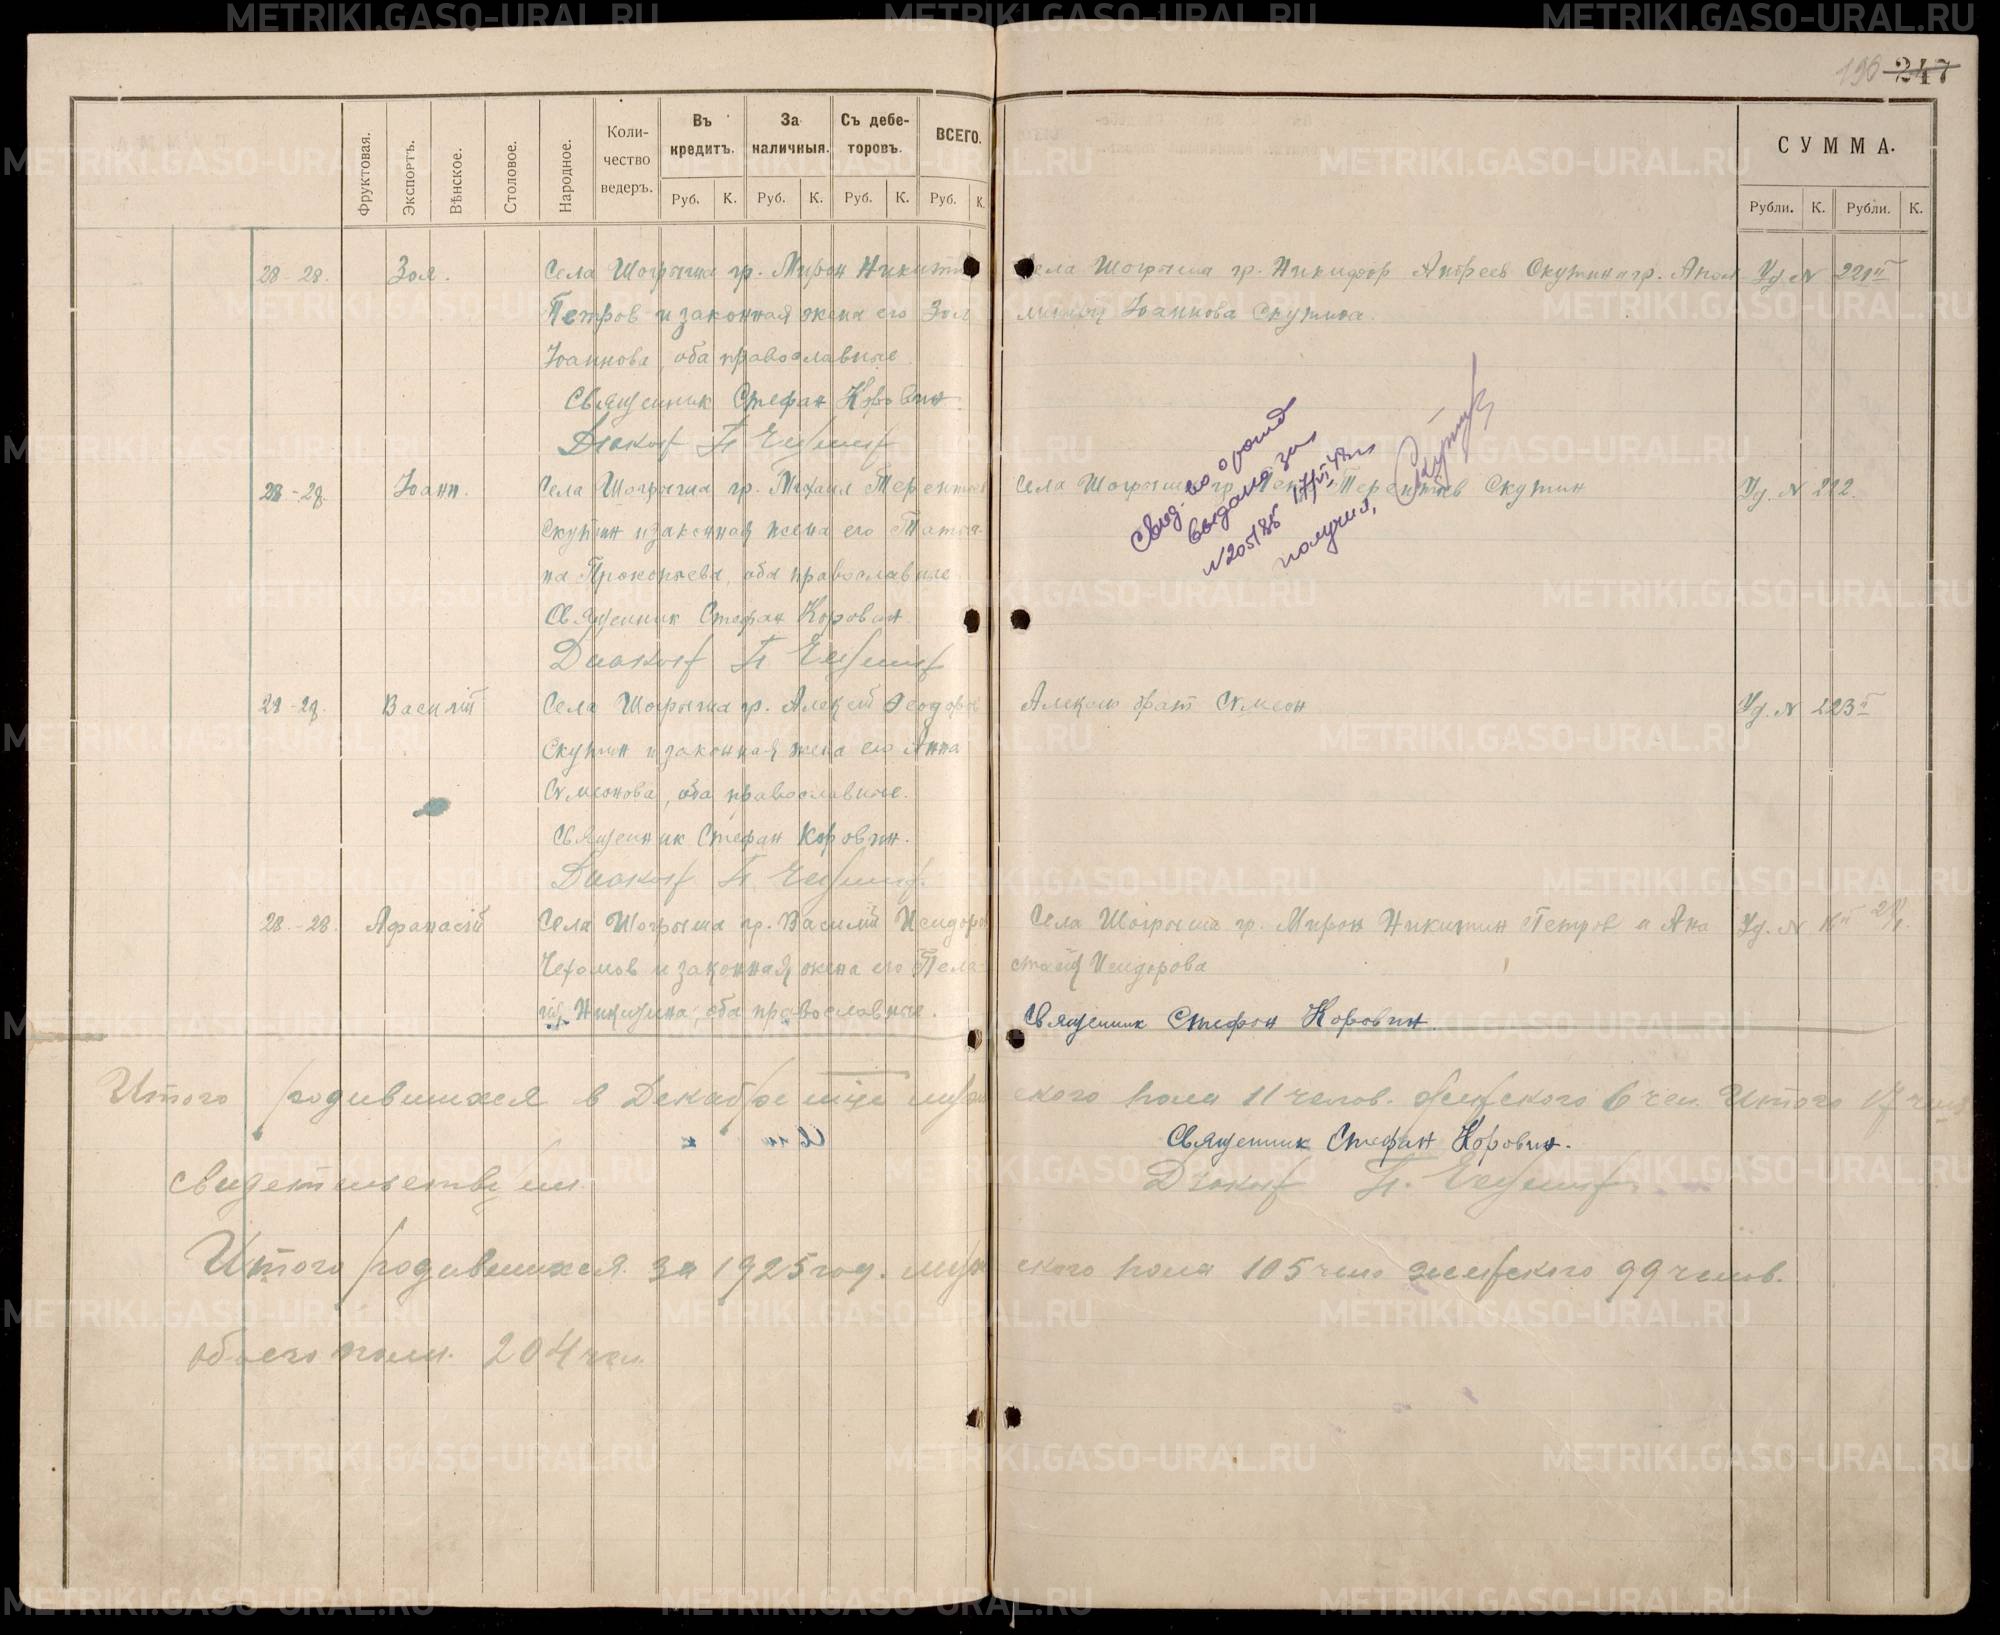 196 247
Фруктовая. Экспортъ. Вѣнское. Столовое. Народное. Количество ведеръ. Въ кредитъ. За наличныя. Съ дебеторовъ. ВСЕГО.
Руб. К. Руб. К. Руб. К. Руб. К.
СУММА.
Рубли. К. Рубли. К.
28-28. Зоя. Села Шогрыша гр. Мирон Никитин
Петров и законная жена его Зоя
Іоаннова, оба православные.
Священник Стефан Коровин
Диакон П
Села Шогрыша гр. Никифор Андреев Скутин и гр.
Іоаннова Скутина.
Уд. N 221
28-29. Іоанн. Села Шогрыша гр. Михаил Терентьев
Скутин и законная жена его Татья-
на Прокопьева, оба православные
Священник Стефан Коровин.
Диакон П
Села Шогрыша гр. Терентьев Скутин
Уд. N 222.
Свид. во о рожд
выдана за
N 205185
получил, Скутин
29-29. Василій Села Шогрыша гр. Алексій Феодоров
Скутин и законная жена его Анна
Симеонова, оба православные.
Священник Стефан Коровин.
Диакон П
Алексия брат Симеон
Уд. N 223
28.-28. Афанасій Села Шогрыша гр. Василій Исидоров
и законная жена его Пела-
гія Никитина, оба православные.
Села Шогрыша гр. Мирон Никитин Петров и Ана
стасія Исидорова
Священник Стефан Коровин.
Уд. N
Итого родившихся в Декабре м-це муж ского пола 11 челов. женского 6 чел. Итого 17 чел
Священник Стефан Коровин.
свидетельствуем.
Диакон П.
Итого родившихся за 1925 год. муж ского пола 105 чело женского 99 челов.
обоего пола. 204 чел.
METRIKI.GASO-URAL.RU